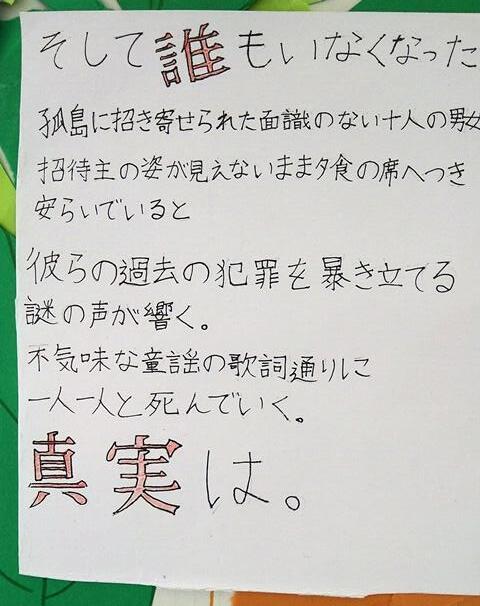 そして誰もいなくなった
孤島に招き寄せられた面識のない十人の男女
招待主の姿が見えないまま夕食の席へつき
安らいでいると
彼らの過去の犯罪を暴き立てる
謎の声が響く。
不気味な童謡の歌詞通りに
一人一人と死んでいく。
真実は。